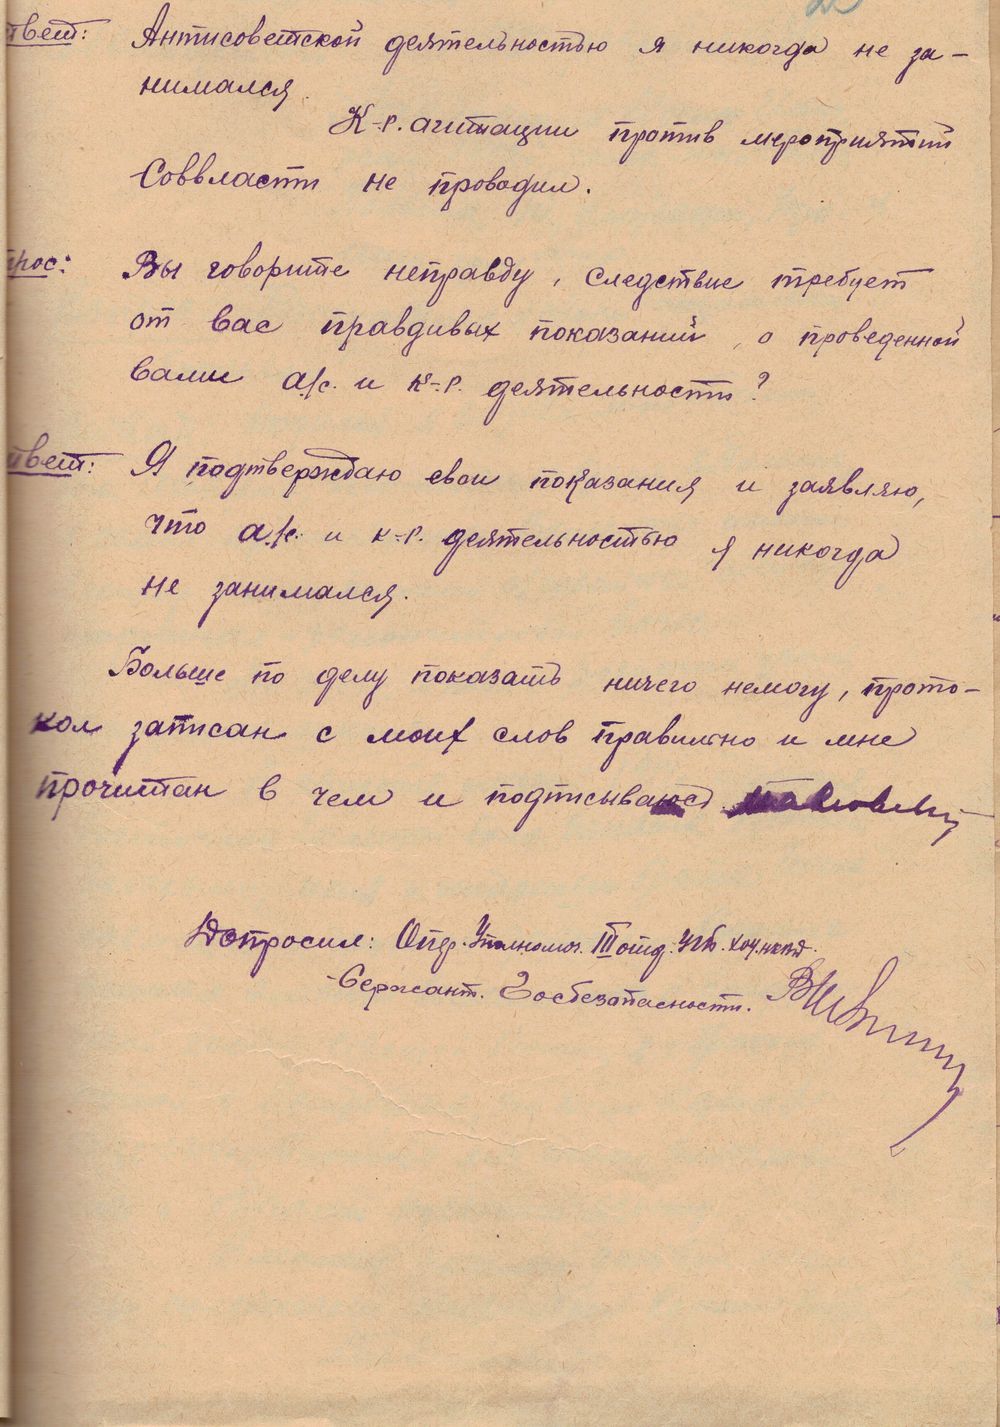 твет: Антисоветской деятельностью я никогда не за-
нимался.
К-р. агитации против мероприятий
Соввласти не проводил.
прос: Вы говорите неправду, следствие требует
от вас правдивых показаний, о проведенной
вами а/с. и к-р. деятельности?
твет: Я подтверждаю свои показания и заявляю,
что а/с. и к-р. деятельностью я никогда
не занимался.
Больше по делу показать ничего немогу, прото-
кол записан с моих слов правильно и мне
прочитан в чем и подписываюсь
Допросил: Опер. Уполномоч. III отд. УГБ. ХОУ.НКВД.
Сержант. Госбезопасности.